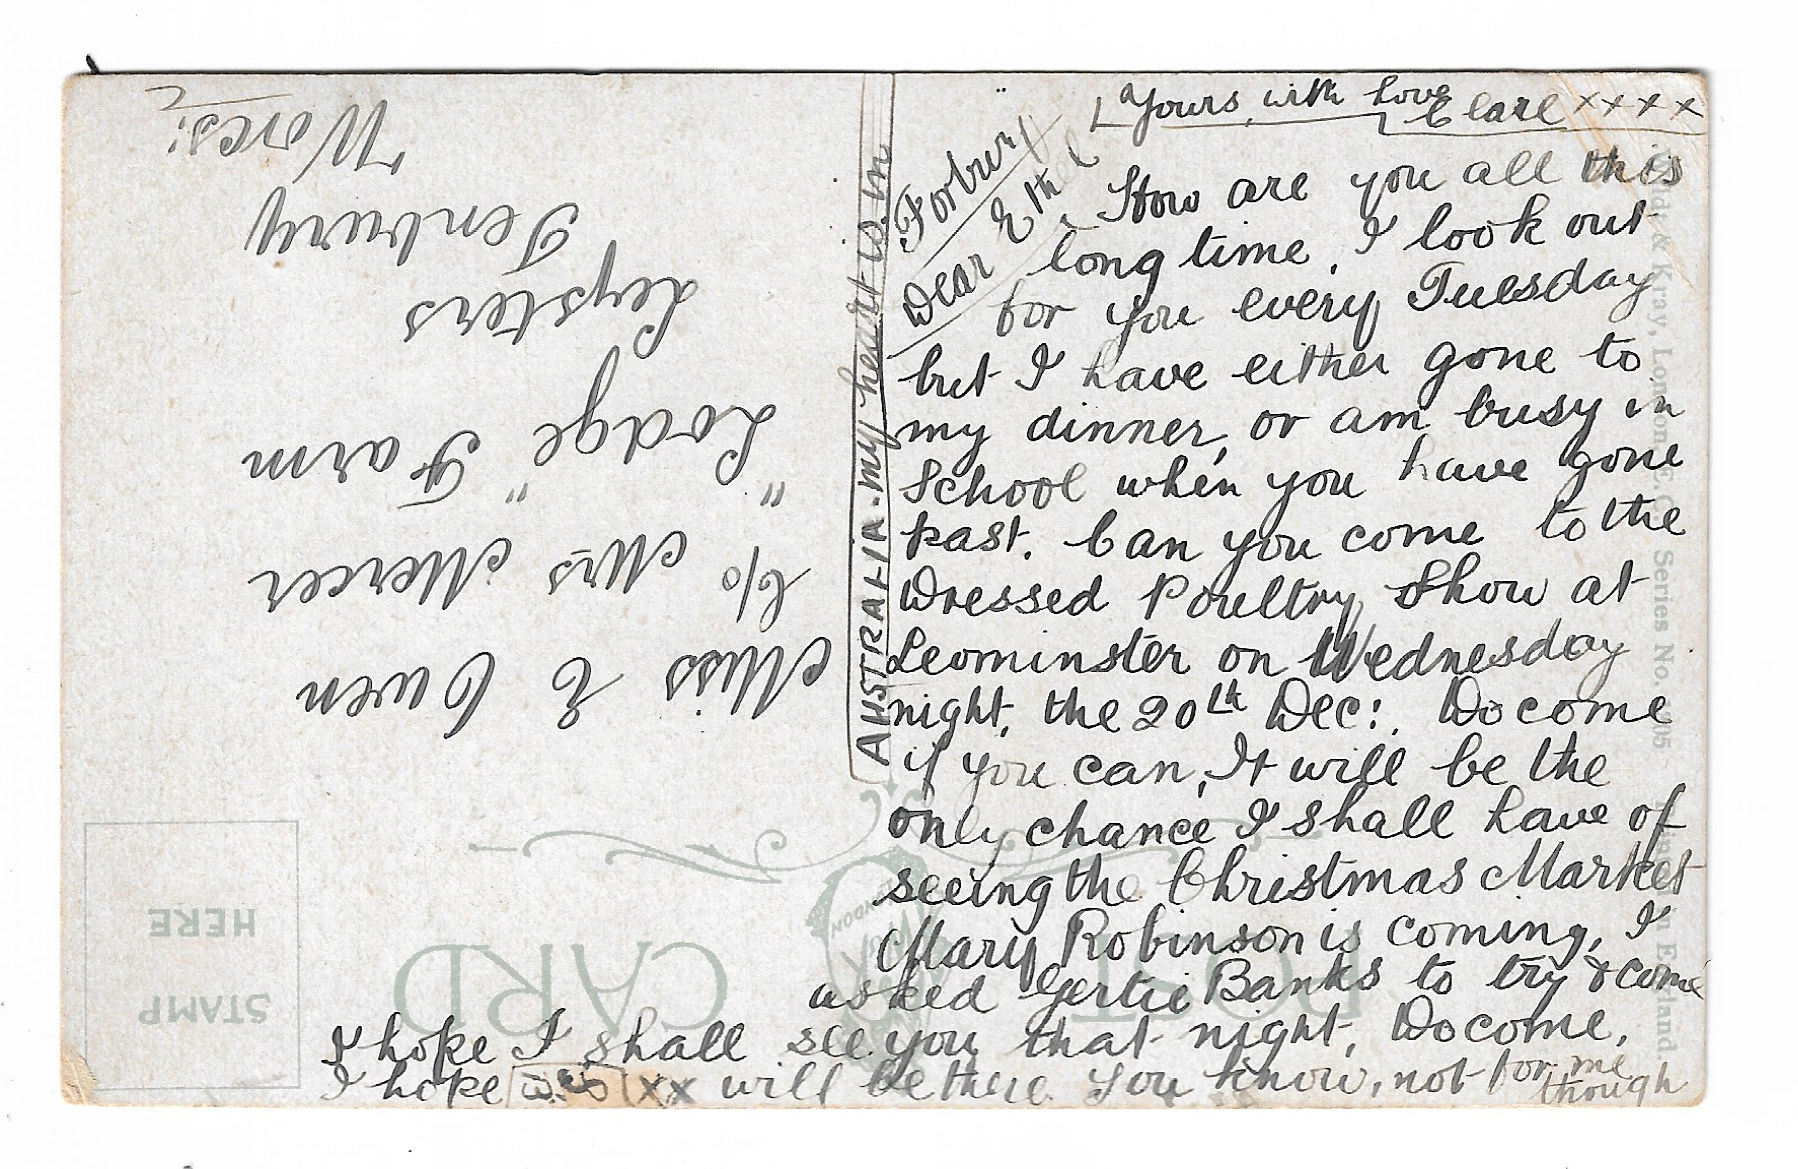 Yours, with love
Clare x x x x
Forbury
Dear Ethel
How are you all this
long time. I look out
for you every Tuesday
but I have either gone to
my dinner, or am busy in
School when you have gone
past. Can you come to the
Dressed Poultry Show at
Leominster on Wednesday
night, the 20th Dec:. Do come
if you can, It will be the
only chance I shall have of
seeing the Christmas Market
Mary Robinson is coming, I
asked Gertie Banks to try & come
I hope I shall see you that night. Do come.
I hope xx will be there you know, not for me
though
AUSTRALIA. my heart is in
Miss E Owen
C/o Mrs Mercer
"Lodge" Farm
Leysters
Tenbury
Worcs:
POST CARD
STAMP
HERE
& Kray, London, E.C. Series No. in England.